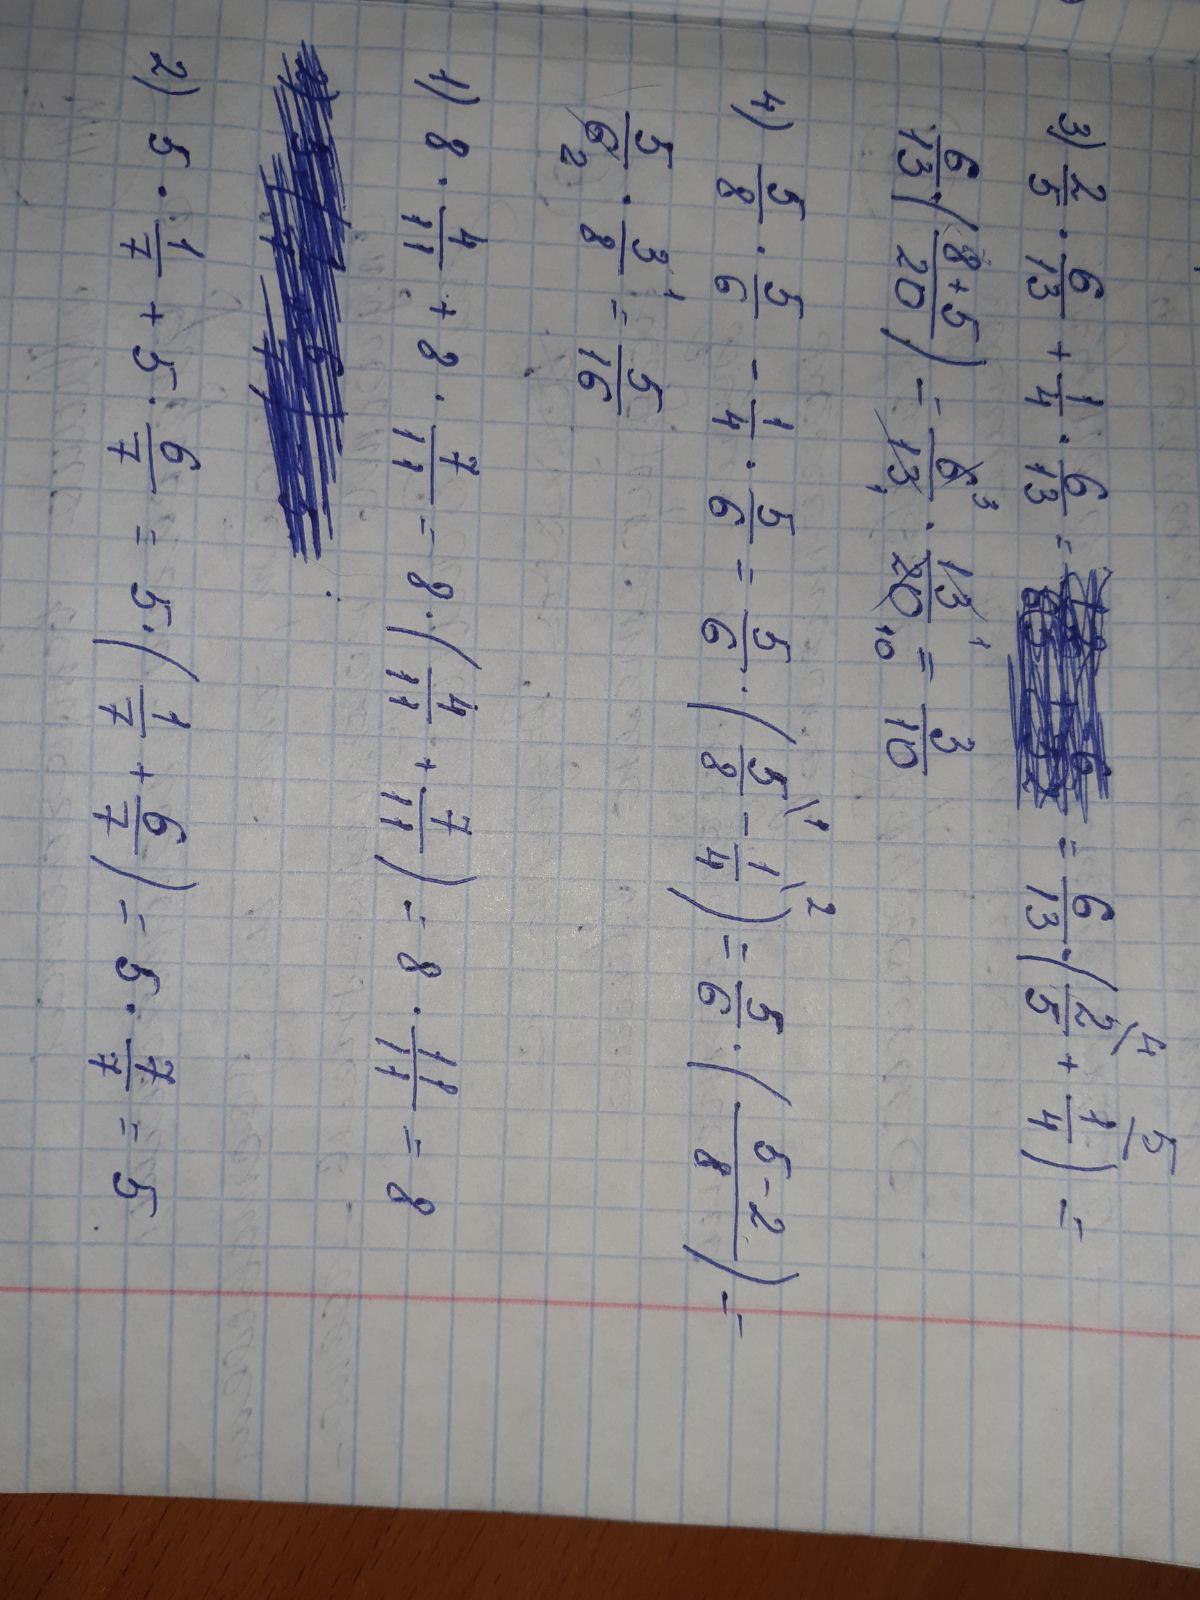 3) 2/5 · 6/13 + 1/4 · 6/13 = = 6/13 · (2/5 \4 + 1/4 \5) =
6/13 · (8+5/20) = 6/13 1 3 · 13/20 10 1 = 3/10
4) 5/8 · 5/6 - 1/4 · 5/6 = 5/6 · (5/8 \1 - 1/4 \2) = 5/6 · (5-2/8) =
5/6 2 · 3/8 1 = 5/16
1) 8 · 4/11 + 8 · 7/11 = 8 · (4/11 + 7/11) = 8 · 11/11 = 8
2) 5 · 1/7 + 5 · 6/7 = 5 · (1/7 + 6/7) = 5 · 7/7 = 5